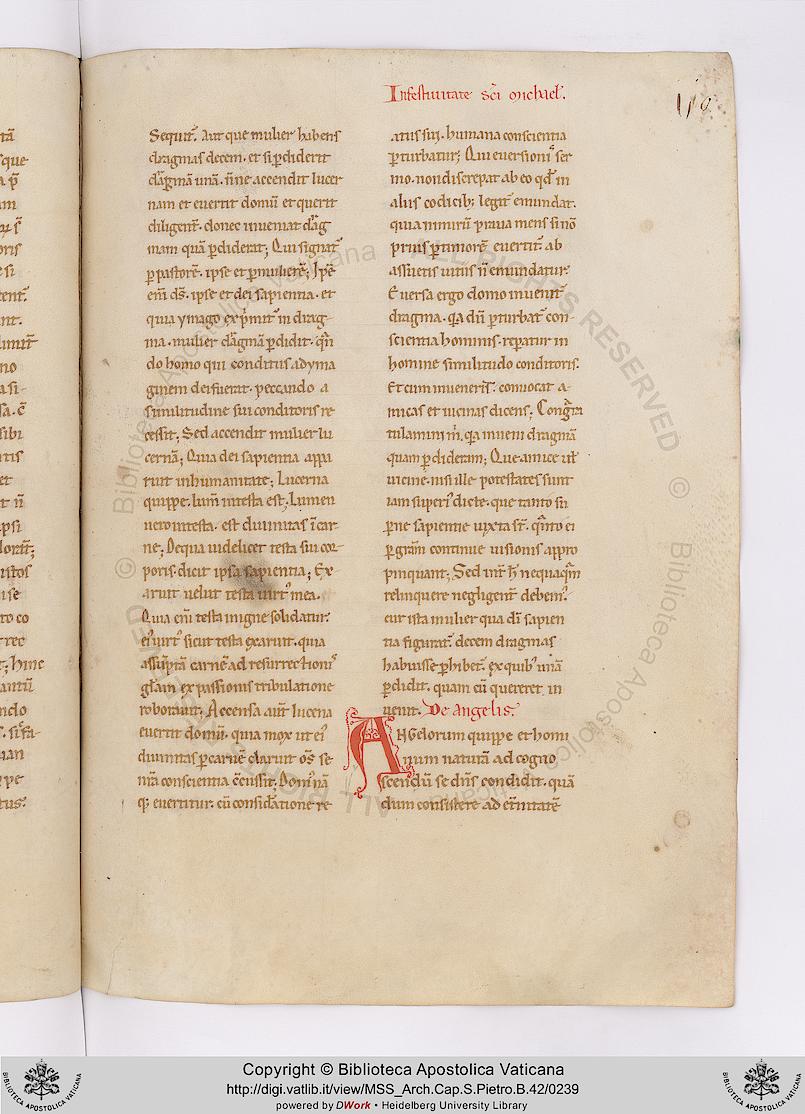 Infestiuitate sc̄i michael̄.
Sequit̄. Aut que mulier habens
dragmas decem. et si ꝑdiderit
dragmā unā. n̄ne accendit lucer
nam et euertit domū et querit
diligent̄. donec inueniat drag
mam quā ꝑdiderat; Qui signat᷑
ꝑ pastorē. ipse et ꝑ mulierē; Ip̄e
eni̅ ds̄. ipse et dei sapientia. et
quia ymago exp̄mit᷑ in drag-
ma. mulier dragmā ꝑdidit. qn̄
do homo qui conditus ad yma
ginem dei fuerat. peccando a
similitudine sui conditoris re
cessit; Sed accendit mulier lu
cernā; Quia dei sapientia appa
ruit in humanitate; Lucerna
quippe. lum̄ in testa est; Lumen
uero in testa. est diuinitas ī car
ne; De qua uidelicet testa sui cor-
poris. dicit ipsa sapientia; Ex
aruit uelut testa uirt᷒ mea.
Quia eni̅ testa in igne solidatur.
ei᷒ uirt᷒ sicut testa exaruit. quia
assūptā carnē ad resurrectionis
gl̄am ex passionis tribulatione
roborauit. Accensa aut̄ lucena
euertit domū. quia mox ut ei᷒
diuinitas ꝑ carnē claruit om̄s se
nr̄a conscientia c̄cussit; Dom᷒ nā
q; euertitur. cū consideratione re
atus sui. humana conscientia
ꝑturbatur; Qui euersionis ser
mo. non discrepat ab eo qd̄ in
aliis codicib; legit᷑ emundat.
quia nimirū praua mens si nō
prius ꝑ timorē euertit᷑ ab
assuetis uitiis n̄ emundatur.
Euersa ergo domo inuenit᷑
dragma. q̄a dū ꝑturbat᷑ con-
scientia hominis. reparatur in
homine similitudo conditoris.
Et cum inuenerit. conuocat a-
micas et uicinas dicens; Congra
tulamini m̄. q̄a inueni dragmā
quam ꝑdideram; Que amice ul̄
uicine. nisi ille potestates sunt
iam superi᷒ dicte. que tanto su
ꝑne sapientie iuxta st̄. quāto ei
ꝑ grām continue uisionis appro
pinquant; Sed int̄ h̄ nequaq̄m
relinquere negligent̄ debem᷒.
cur ista mulier qua dī sapien
tia figurat᷑ decem dragmas
habuisse ꝑhibet᷑ ex quib᷒ unā
ꝑdidit. quam cū quereret in
uenit. De angelis.
Angelorum quippe et homi
num naturā ad cogno
scendū se dn̄s condidit. quā
dum consistere ad et̄nitatē
Copyright © Biblioteca Apostolica Vaticana
http://digi.vatlib.it/view/MSS_Arch.Cap.S.Pietro.B.42/0239
powered by DWork • Heidelberg University Library